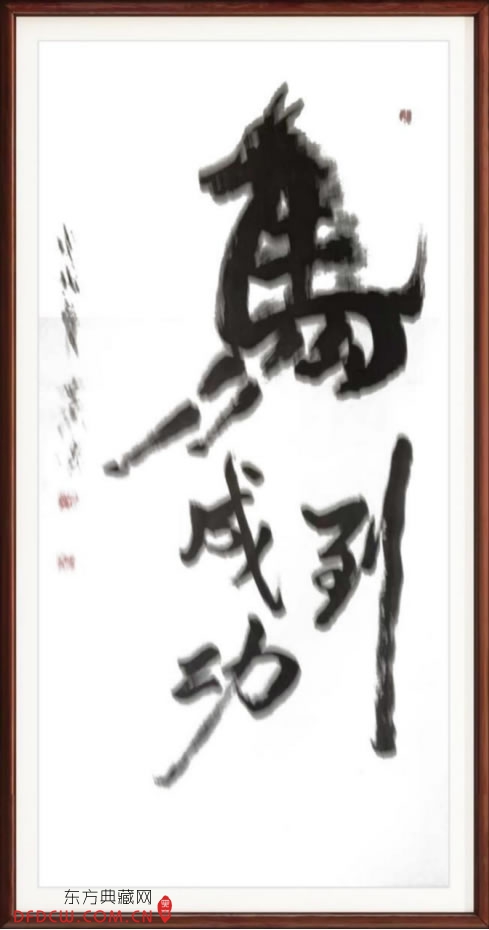 馬到
成功
东方典藏网
DFDCW.COM.CN